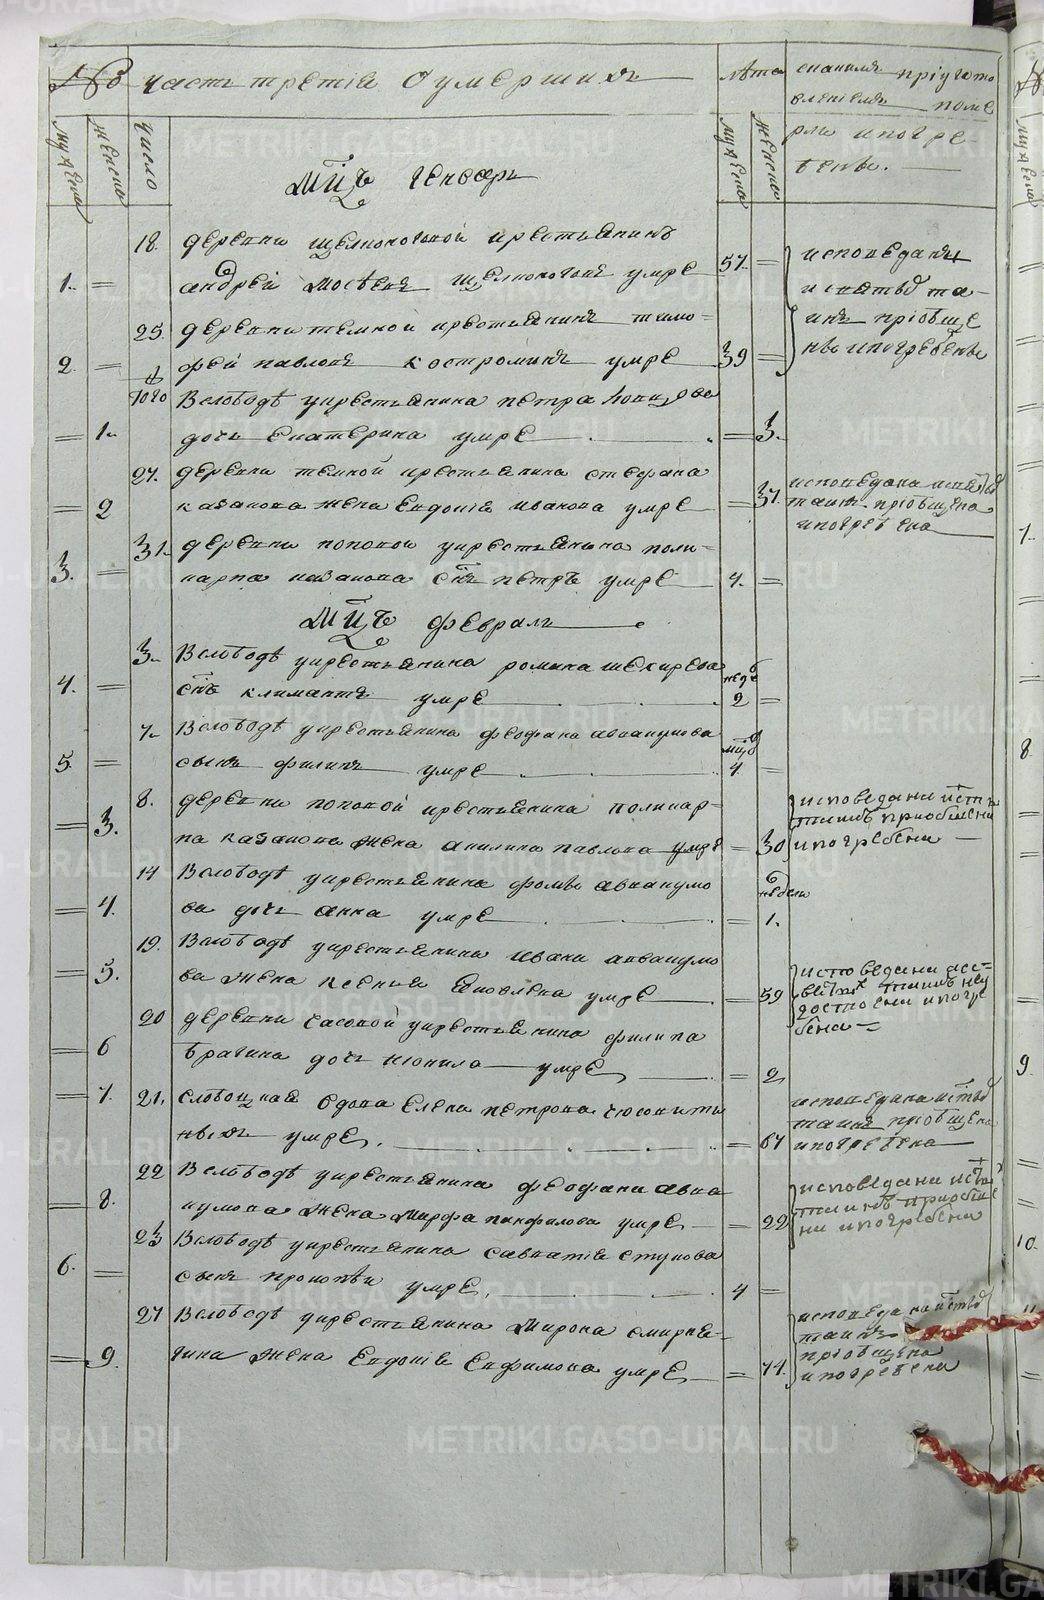 № часть третiя О умершихъ
лѣта
съ каким прiугото
влениемъ поме
рли ипогре-
бены.
мужеска
женска
число
мужеска
женска
Мцъ Генварь
18. деревни щелконоговой крестьянинъ
1. = андрей Мосѣевъ Щелконоговъ умре 57. =
исповеданъ
и святыхъ та-
инъ прiобще
ны ипогребены
25. деревни темной крестьянинъ тимо-
2. = фей павловъ костроминъ умре 39 =
того В слободѣ укрестьянина петра
= 1. дочь екатерина умре = 3.
27. деревни темной крестьянина стефана
= 2 казакова жена Евдокiя иванова умре = 37.
исповедана исвятыхъ
таинъ прiобщена
ипогребена
31. деревни поповой укрестьянина поли-
3. = карпа казакова снъ петръ умре 4. =
Мцъ февраль
3. В слободѣ укрестьянина романа шекирева
4. = снъ климантъ умре недѣ 2 =
7. В слободѣ укрестьянина феофана авакумова
5. = сынъ филипъ умре мцо 4. =
8. деревни поповой крестьянина поликар-
= 3. па казакова жена акилина павлова умре = 30
исповедани исты
таинъ приобшени
ипогребени
14 В слободѣ укрестьянина фомы авакумо
= 4. ва дочь анна умре = недели 1.
19. В слободѣ укрестьянина ивана авакумо
= 5. ва жена ксения Яковлева умре = 59
исповедани асс-
вятых таинъ неу
достоени ипогре
бена =
20 деревни часовой укрестьянина филипа
= 6 брагина дочь неонила умре = 2
= 7. 21. слободцкая вдова Елена петрова
ныхъ умре. = 67
исповедана истыхъ
таинъ прiобщена
ипогребена
22 В слободѣ укрестьянина феофана авва
= 8. кумова жена Марфа панфилова умре = 22
исповедани исты
таинъ приобше
ни ипогребени
23 В слободѣ укрестьянина савватiя стукова
6. = сынъ прокопiи умре, 4 =
27 В слободѣ укрестьянина Мирона смирня-
= 9. гина жена Евдокiя Евфимова умре = 74.
исповедана истыхъ
таинъ
прiобщена
ипогребена
METRIKI.GASO-URAL.RU